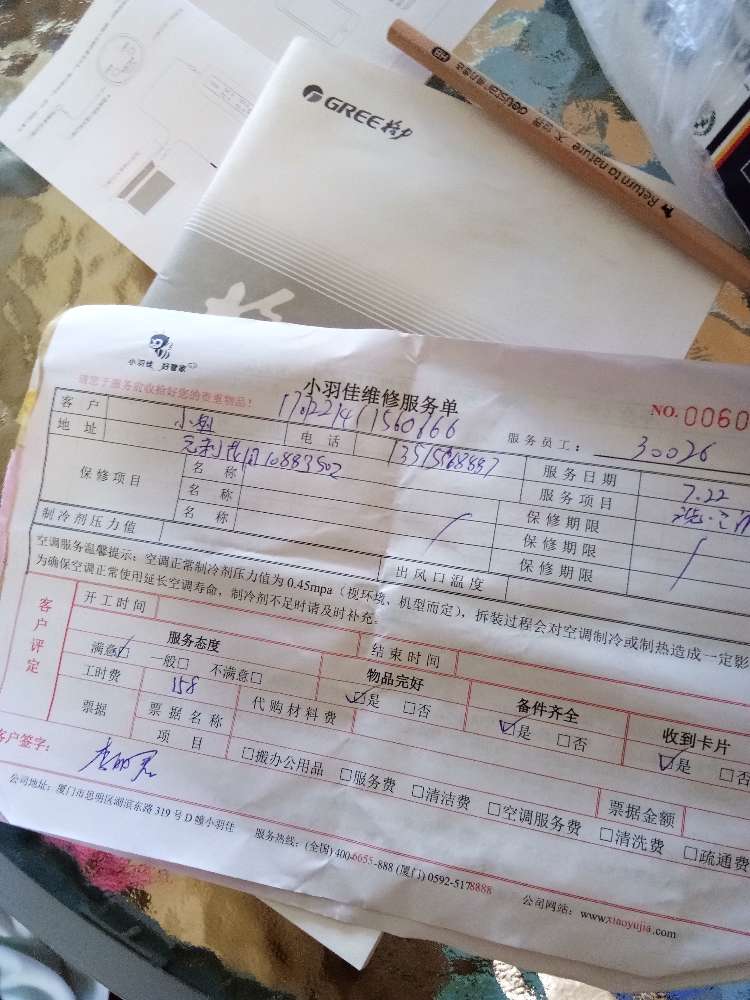 GREE 格力
HB
Return to nature
小羽佳 好管家
小羽佳维修服务单
NO. 0060
请您于服务前收拾好您的贵重物品!
1702214 1560166
服务员工: 30026
客户
电话 13515968887
服务日期 7.22
地址
10883502
服务项目
保修项目
名称
保修期限
名称
保修期限
名称
保修期限
制冷剂压力值
出风口温度
空调服务温馨提示: 空调正常制冷剂压力值为 0.45mpa (视环境、机型而定), 拆装过程会对空调制冷或制热造成一定影
为确保空调正常使用延长空调寿命, 制冷剂不足时请及时补充。
客户评定
开工时间
结束时间
服务态度
物品完好
备件齐全
收到卡片
满意☑ 一般☐ 不满意☐
☑是 ☐否
☑是 ☐否
☑是 ☐否
工时费 158
代购材料费
票据
票据名称
票据金额
项目
☐搬办公用品 ☐服务费 ☐清洁费 ☐空调服务费 ☐清洗费 ☐疏通费
客户签字:
公司地址: 厦门市思明区湖滨东路 319 号 D 幢小羽佳
服务热线: (全国) 400-6655-888 (厦门) 0592-5178888
公司网站: www.xiaoyujia.com